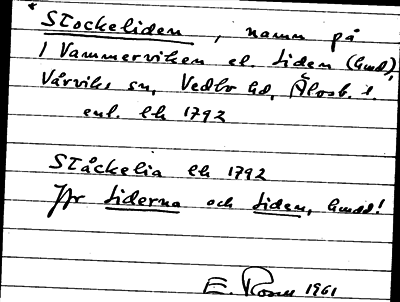 * Stockeliden, namn på
1 Vammerviken el. Liden (hmd),
Vårviks sn, Vedbo hd, Älvsb. l.
enl. lk 1792
Ståckelia lk 1792
Jfr Liderna och Liden, hmdd!
E. 1961